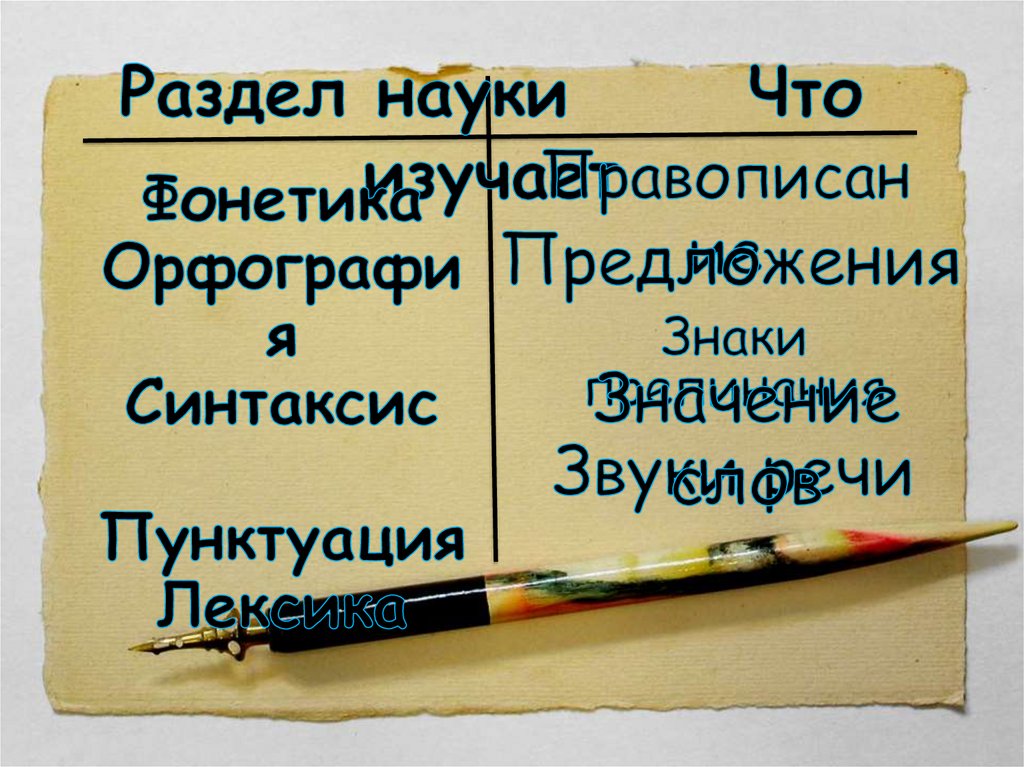 Раздел науки Что
изучает
Фонетика
Орфографи
я
Синтаксис
Пунктуация
Лексика
Правописан
ие
Предложения
Знаки
препинания
Значение
слов
Звуки речи